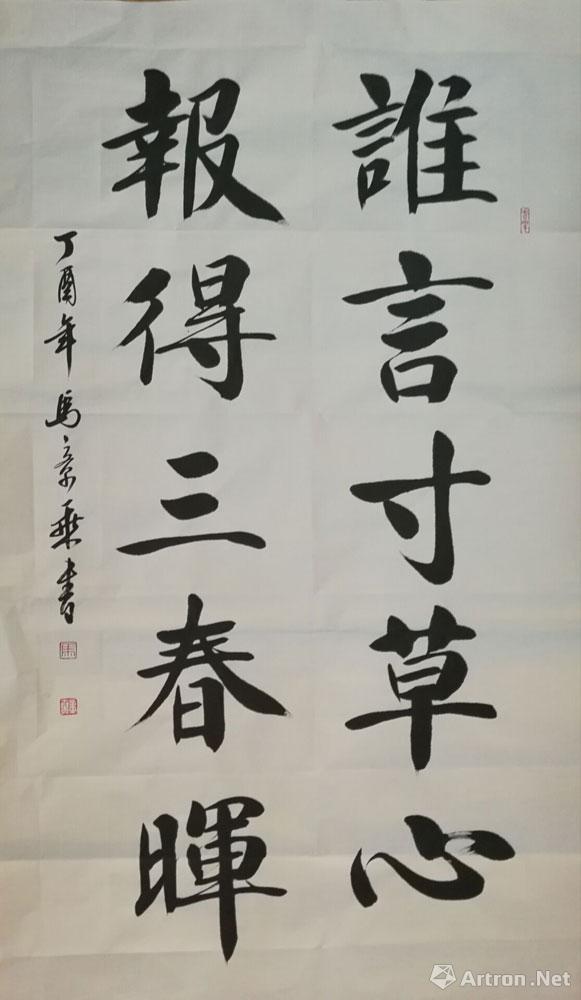 誰言寸草心
報得三春暉
丁酉年馬景乘書
Artron.Net